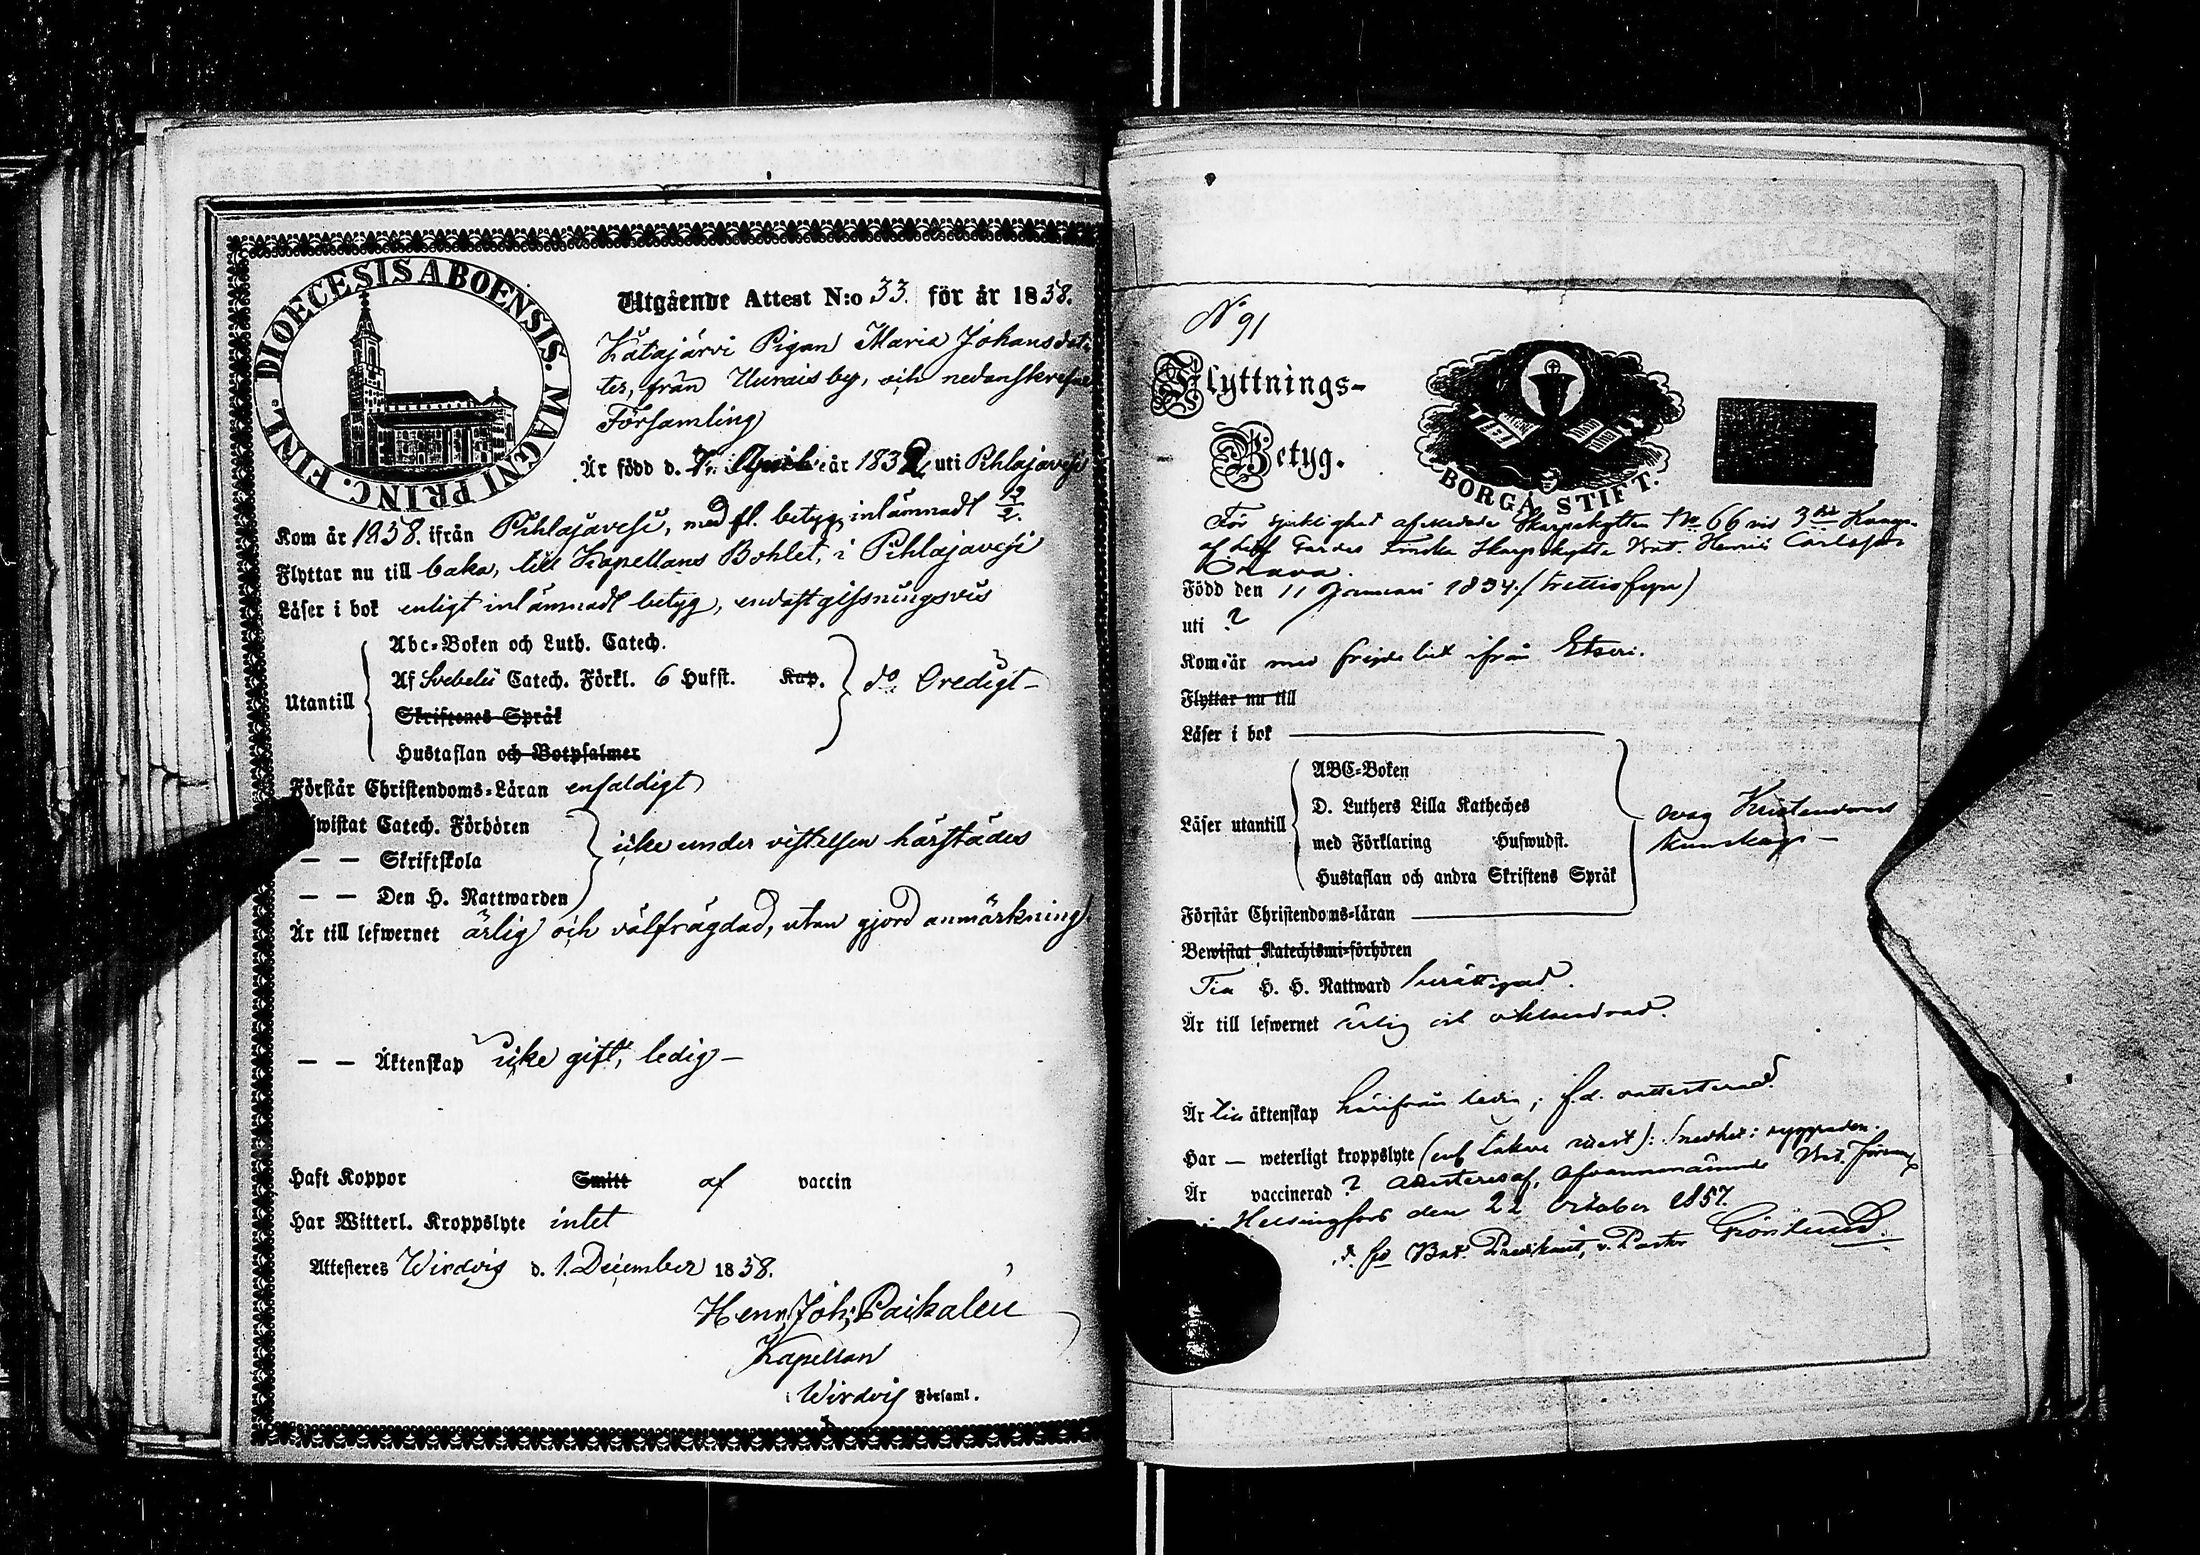 DIOECESIS ABOENSIS. MAGNI PRINC. FINL.
Utgående Attest N:o 33. för år 1858.
Katajärvi Pigan Maria Johansdot-
ter, från Kurais by, och nedanskrefne
Församling
Är född d. 7. April år 1832 uti Pihlajavesi
Kom år 1858. ifrån Pihlajavesi, med fl. betyg inlämnadt 12/2.
Flyttar nu till baka, till Kapellans Bohlet, i Pihlajavesi
Läser i bok enligt inlämnadt betyg, endast gissningsvis
Utantill
Abc-Boken och Luth. Catech.
Af Svebelii Catech. Förkl. 6 Hufst. Kap. do Oredigt
Skriftenes Språk
Hustaflan och Botpsalmer
Förstår Christendoms-Läran enfaldigt
Bewistat Catech. Förhören
— — Skriftskola icke under vistelsen härstädes
— — Den H. Nattwarden
Är till lefwernet ärlig och välfrägdad, utan gjord anmärkning
— — Äktenskap icke gift, ledig —
Haft Koppor Smitt af vaccin
Har Witterl. Kroppslyte intet
Attesteres Wirdois d. 1. December 1858.
Henr. Joh. Paikalén
Kapellan
i Wirdois Församl.
No 91
Flyttnings-
Betyg.
BORGÅ STIFT.
För sjuklighet afskedade Skarpskytten No 66 vid 3die Komp.
af Lif Gardes Finska Skarpskytte Bat. Henric Carlsson
Orava.
Född den 11 Januari 1834 / (trettiofyra)
uti ?
Kom år med frejdebet ifrån Etseri.
Flyttar nu till
Läser i bok
Läser utantill
ABC-Boken
D. Luthers Lilla Katheches
med Förklaring Hufwudst.
Hustaflan och andra Skriftens Språk
svag Kristendoms
kunskap —
Förstår Christendoms-läran
Bewistat Katechismi-förhören
Till H. H. Nattward berättigad.
Är till lefwernet ärlig och oklandrad.
Är till äktenskap härifrån ledig; f.d. attesterad.
Har — weterligt kroppslyte (enl. Läkare attest): Snedhet i ryggraden.
Är vaccinerad ? Attesteras af, Ofvannämnde Bat. Förs.
i Helsingfors den 22 October 1857.
Bat. Predikant, v. Pastor Grönlund.